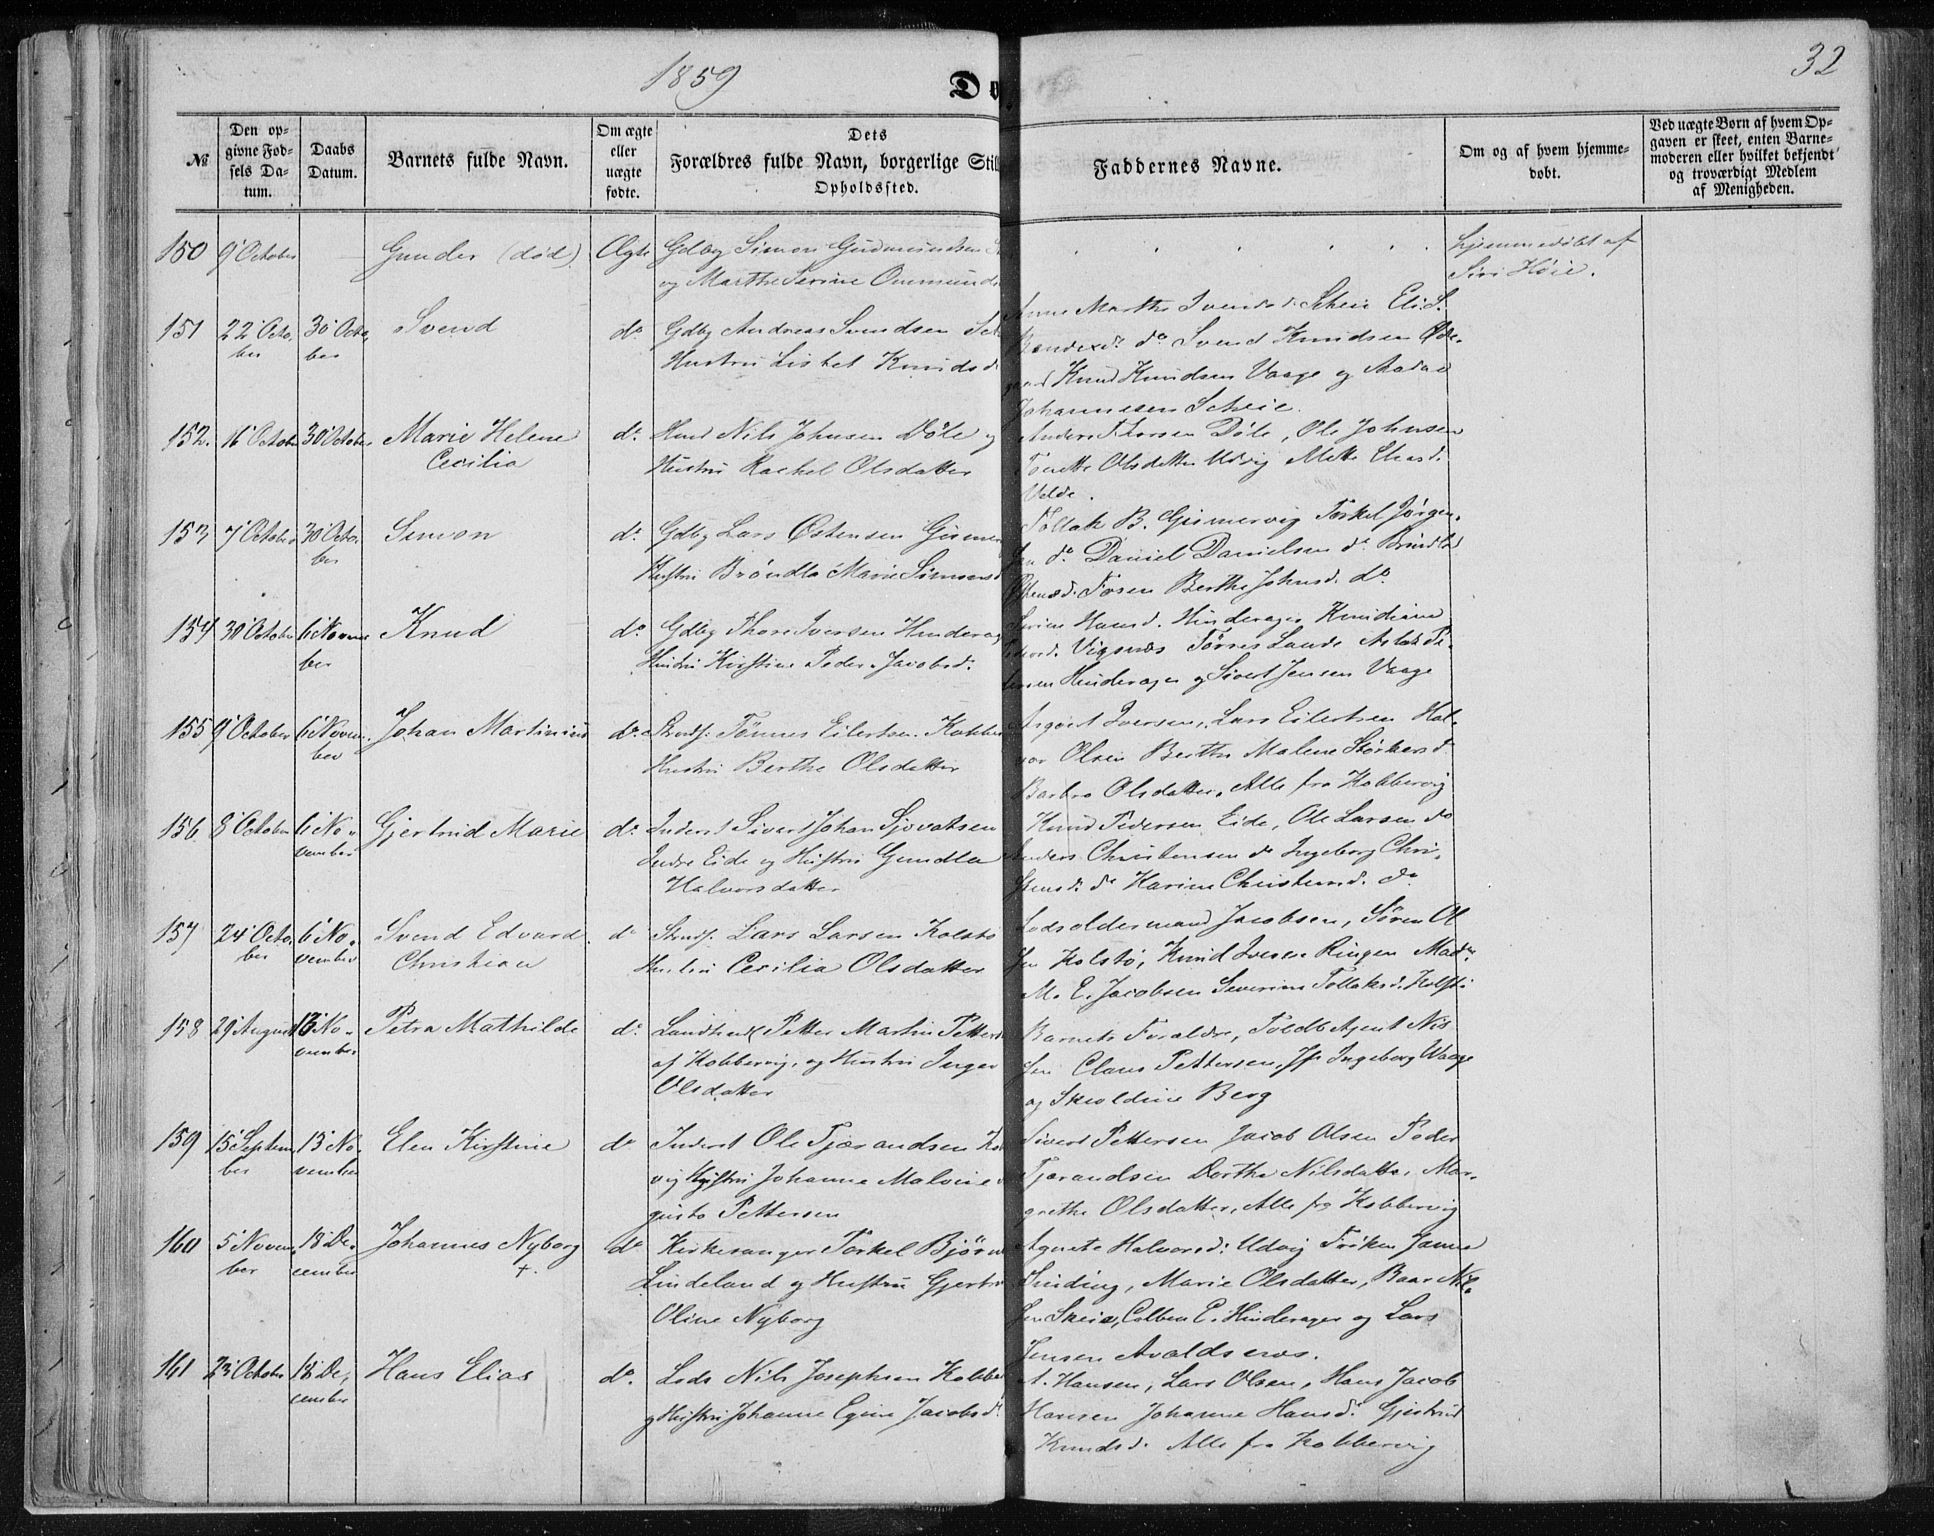 1859
32
Dø
№
Den op-
givne Fød-
sels Da-
tum.
Daabs
Datum.
Barnets fulde Navn.
Om ægte
eller
uægte
fødte.
Dets
Forældres fulde Navn, borgerlige Stil
Opholdssted.
Faddernes Navne.
Om og af hvem hjemme-
døbt.
Ved uægte Børn af hvem Op-
gaven er skeet, enten Barne-
moderen eller hvilket bekjendt
og troværdigt Medlem
af Menigheden.
150 9 October Gunder (død) Ægte Gdbg Simon Gudmundsen
og Marthe Serine Ommunds
hjemmedøbt af
Siri Høie.
151 22 Octo- 30 Octo- Svend do Gdbg Andreas Svendsen
ber ber Hustru Lisbet Knudsd
Anne Marthe Svendsd. Scheie Eli S.
do Svend Knudsen Øde-
gaard Knud Knudsen Vaage og Aadne
Johannesen Scheie.
152. 16 October 30 October Marie Helene do Nils Johnsen Døle og
Cecilia Hustru Rachel Olsdatter
Anders Larsen Døle, Ole Johnsen
Tonette Olsdatter Udvig Mette
Velde.
153 7 October 30 Octo- Simon do Gdbg Lars Østensen Gismer
ber Hustru Brøndla Marie Simonsd
Tollak B. Gismervig Torkel Jørgen-
sen do Daniel Danielsen do Brøndla
Fosen Berthe Johnsd. do
154 30 October 6 Novem Knud do Gdbg Thore Iversen Hinderag
ber Hustru Kirstine Peder. Jacobsd.
Serine Hansd. Hinderager Knudiane
Vigsnes Tørres Lande Aslak Pe-
dersen Hinderager og Sivert Jensen Vaage
155 9 October 6 Novem- Johan Martinius do Strands. Tønnes Eilertsen Kobber
ber Hustru Berthe Olsdatter
Asgout Iversen, Lars Eilertsen Hal-
vor Olsen Berthe Malene Størkersd
Barbro Olsdatter, Alle fra Kobbervig
156 8 October 6 No- Gjertrud Marie do Inderst Sivert Johan Sjovatsen
vember Indre Eide og Hustru Gundla
Halvorsdatter
Knud Pedersen Eide, Ole Larsen do
Anders Christensen do Ingeborg Chri-
stensd. do Karine Christensd. do
157 24 Octo- 6 No- Svend Edvard do Strands. Lars Larsen Kolstø
ber vember Christian Hustru Cecilia Olsdatter
Lodsoldermand Jacobsen, Søren Ol
sen Kolstø, Knud Iversen Ringen Mad.
M. E. Jacobsen Severine Tollaksd. Kolstø
158 29 August 13 No- Petra Mathilde do Landhandl Petter Martin Petters
vember af Kobbervig, og Hustru Inger
Olsdatter
Barnets Forældre, Toldb Agent Nis
sen Claus Pettersen, Jfr Ingeborg Waage
og Skjoldine Berg
159 15 Septem 13 No- Elen Kirstine do Inderst Ole Tjærandsen Kob
ber vember vig Hustru Johanne Malvine
gusta Pettersen
Sivert Pettersen Jacob Olsen Peder
Tjerandsen Dorthe Nilsdatter, Mar-
grethe Olsdatter, Alle fra Kobbervig
160 5 Novem- 18 De- Johannes Nyborg do Kirkesanger Torkel Bjørn
ber cember +. Lindeland og Hustru Gjertru
Oline Nyborg
Agnete Halvorsd: Udvig Frøken Janna
Sinding, Marie Olsdatter, Baar Nil-
sen Skeie, Colben E. Hinderager og Lars
Jensen Avaldsnes.
161 23 October 18 De- Hans Elias do Lods Nils Josephsen Kobbe
cember og Hustru Johanne Egine Jacobsd
A. Hansen, Lars Olsen, Hans Jacob
Hansen Johanne Hansd. Gjertrud
Knudsd. Alle fra Kobbervig